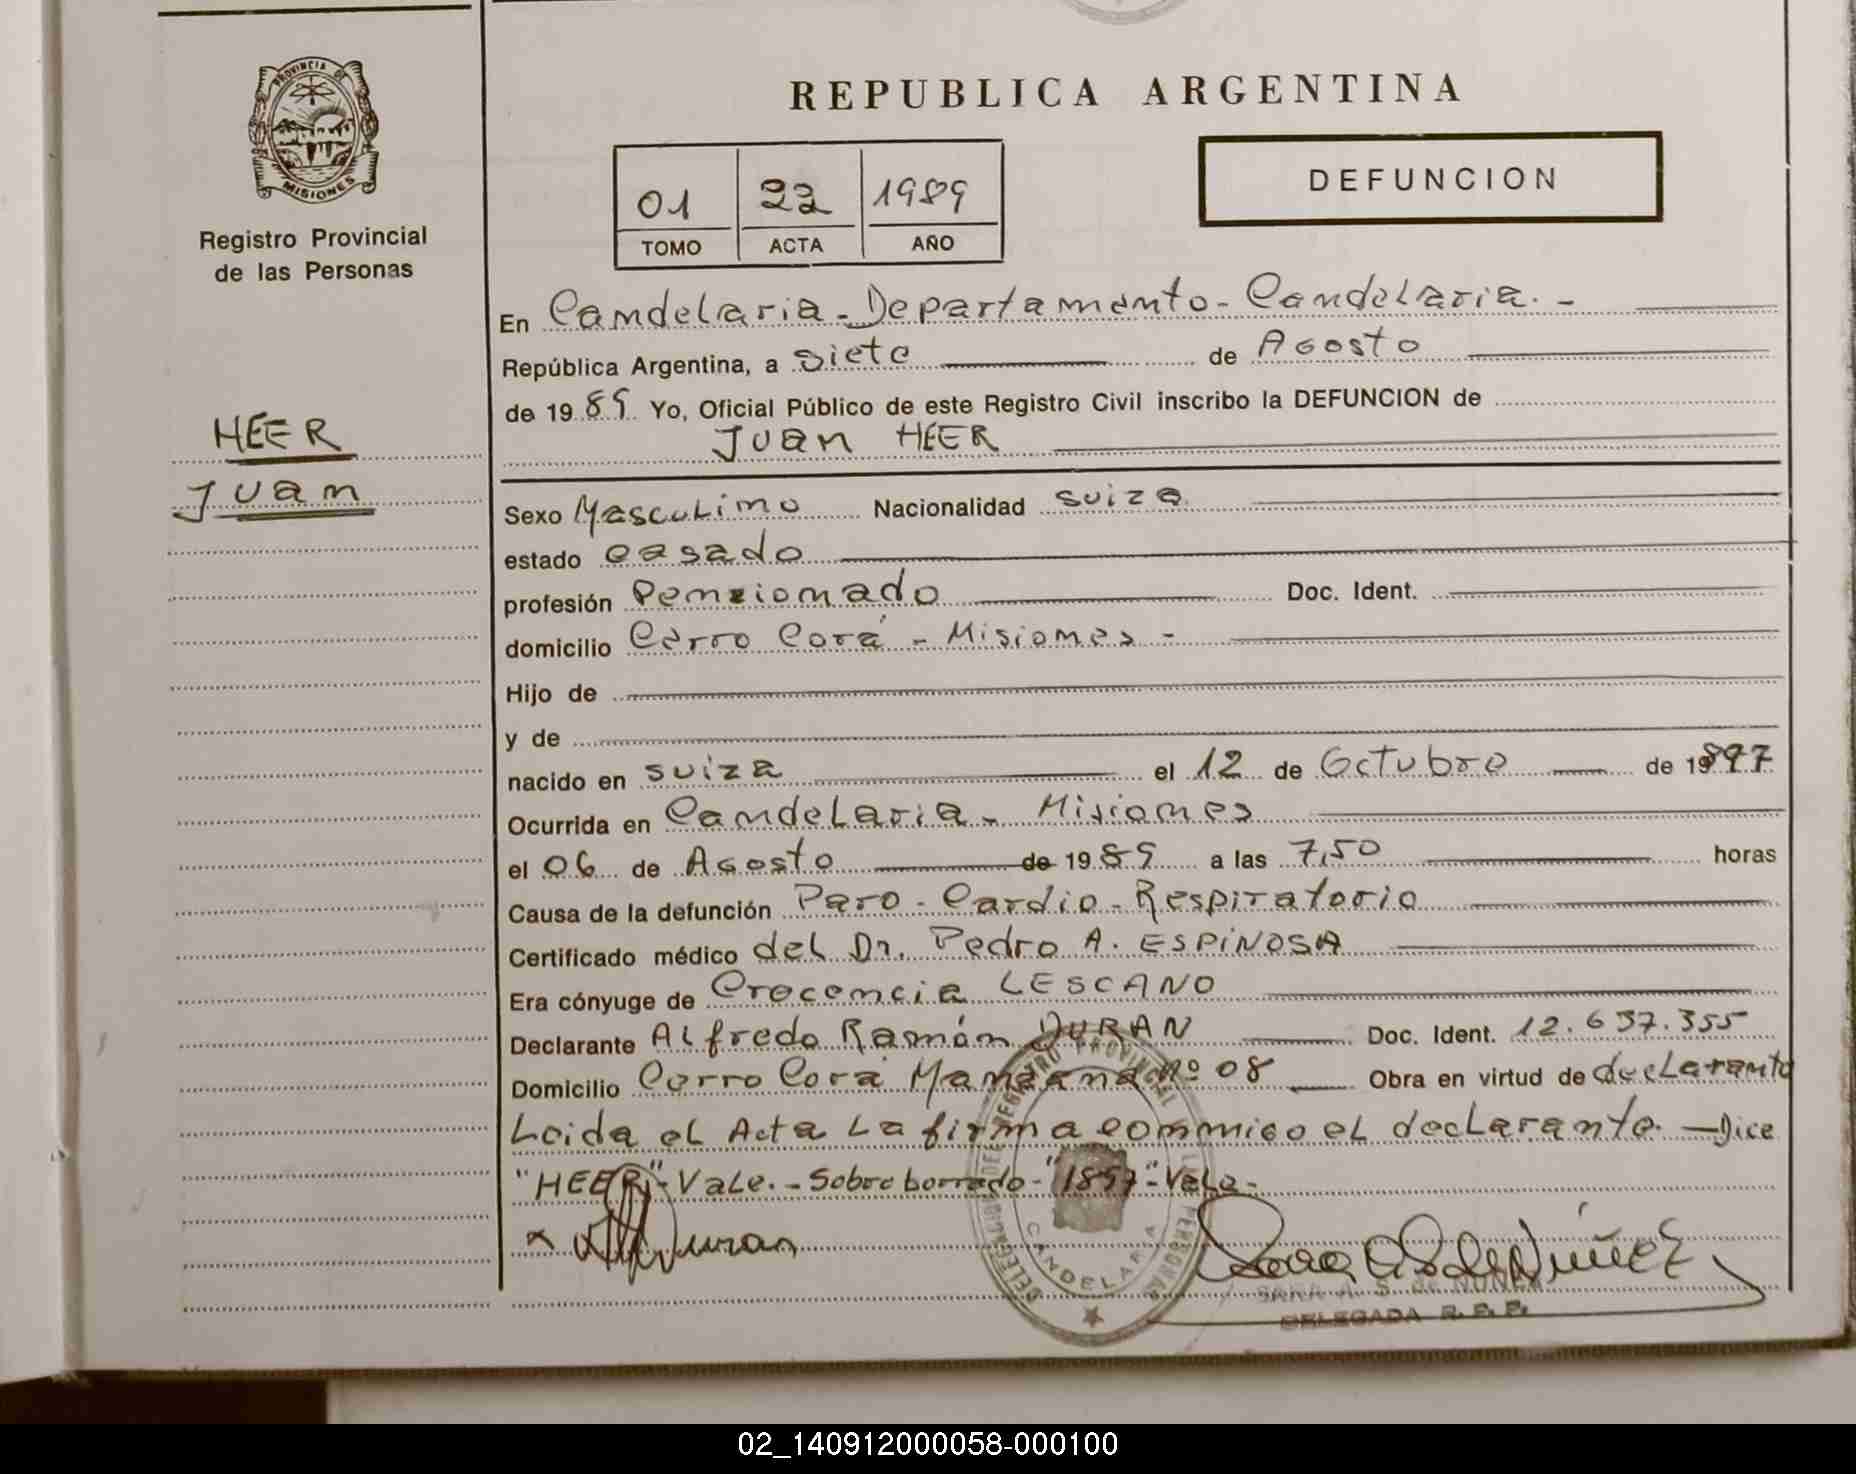 PROVINCIA DE
MISIONES
Registro Provincial
de las Personas
HEER
Juan
REPUBLICA ARGENTINA
01 22 1989
TOMO ACTA AÑO
DEFUNCION
En Candelaria - Departamento - Candelaria. -
República Argentina, a siete de Agosto
de 19 89 Yo, Oficial Público de este Registro Civil inscribo la DEFUNCION de
Juan HEER
Sexo Masculino Nacionalidad suiza
estado casado
profesión Penzionado Doc. Ident.
domicilio Cerro Corá - Misiones -
Hijo de
y de
nacido en suiza el 12 de Octubre de 1897
Ocurrida en Candelaria - Misiones
el 06 de Agosto de 1989 a las 7,50 horas
Causa de la defunción Paro - Cardio - Respiratorio
Certificado médico del Dr. Pedro A. ESPINOSA
Era cónyuge de Crecencia LESCANO
Declarante Alfredo Ramón DURAN Doc. Ident. 12.637.355
Domicilio Cerro Corá Manzana nº 08 Obra en virtud de declarante
Leida el Acta la firma conmigo el declarante. - Dice
"HEER" - Vale. - Sobre borrado - "1897" - Vale -
x Duran
DELEGACION DE REGISTRO PROVINCIAL DE LAS PERSONAS
CANDELARIA
SARA A. S. de NUÑEZ
DELEGADA R. P. P.
02_140912000058-000100